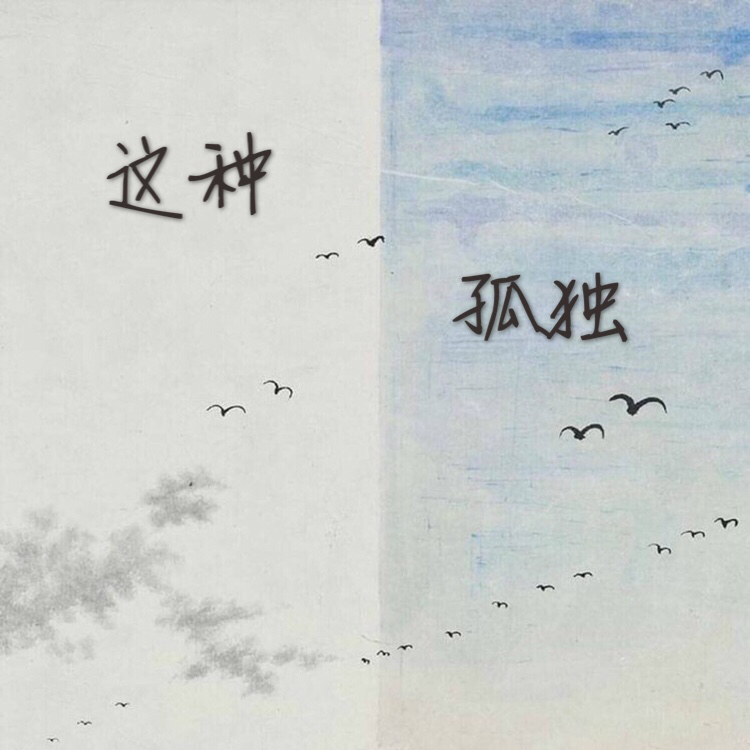 这种
孤独